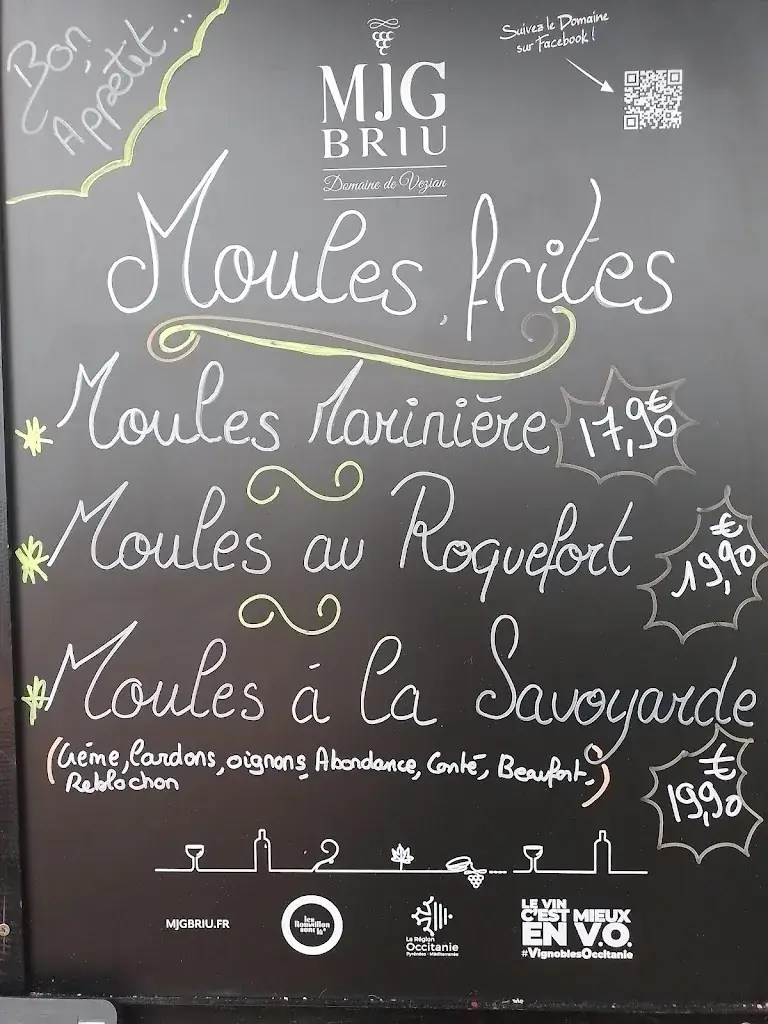 Bon
Appétit...
Suivez le Domaine
sur Facebook !
MJG
BRIU
Domaine de Vezian
Moules frites
Moules Marinière 17,90€
Moules au Roquefort 19,90€
Moules à la Savoyarde
(Crème, lardons, oignons, Abondance, Comté, Beaufort,
Reblochon) 19,90€
MJGBRIU.FR
les
Roussillon
sont là
La Région
Occitanie
Pyrénées - Méditerranée
LE VIN
C'EST MIEUX
EN V.O.
#VignoblesOccitanie